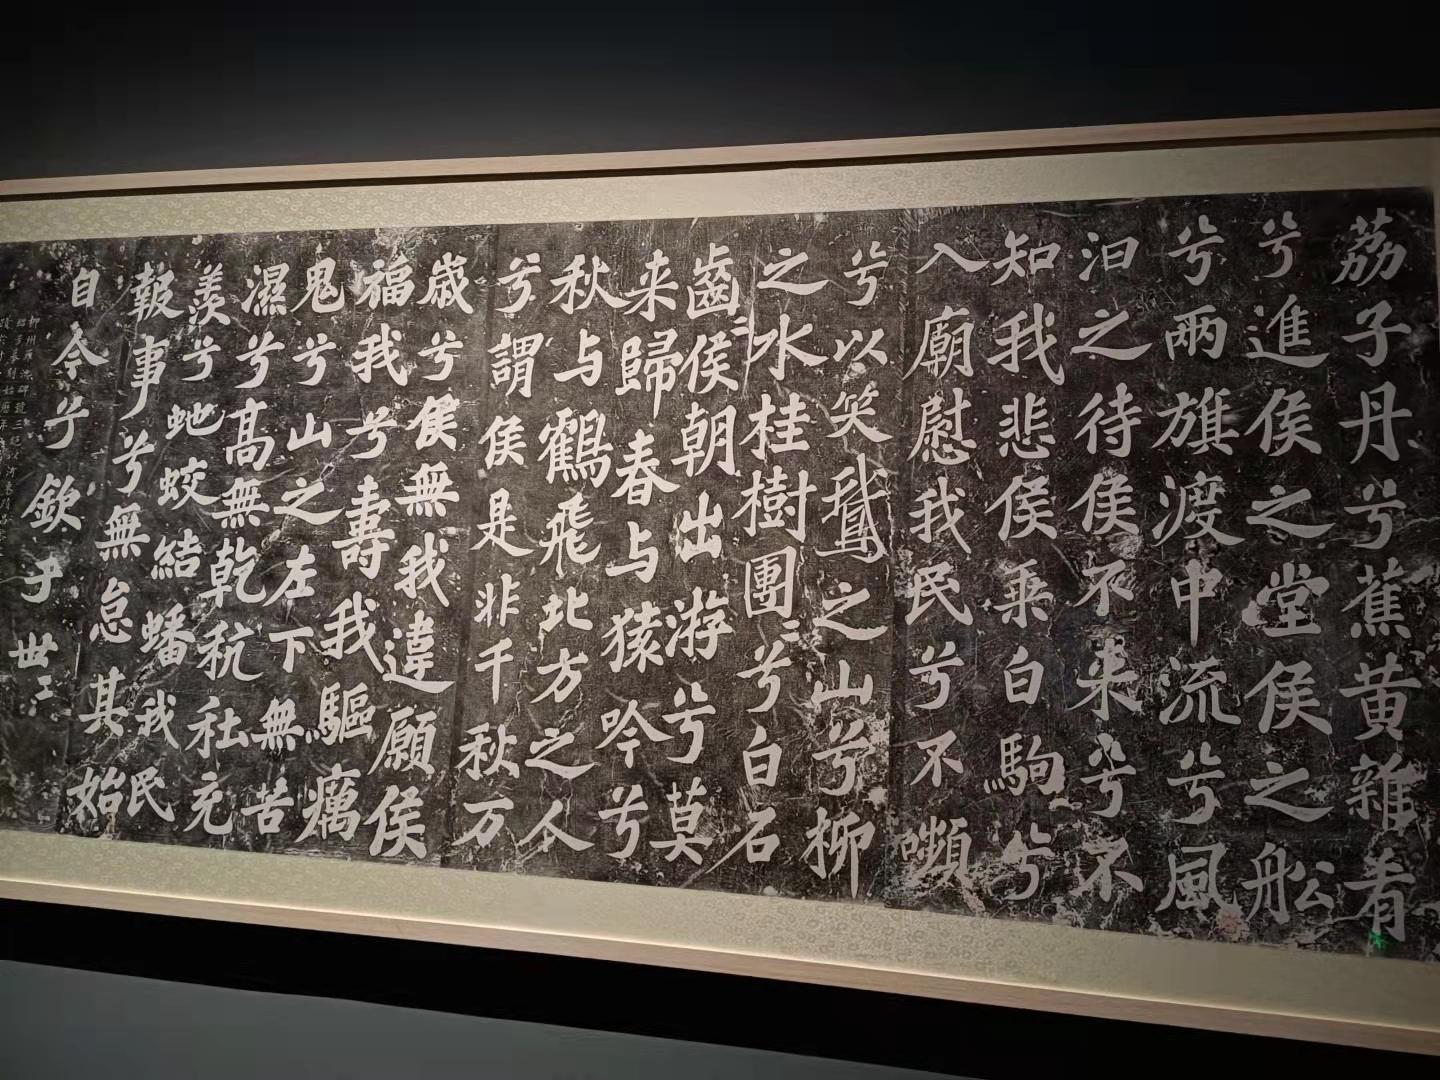 荔子丹兮蕉黄雜肴
兮進侯之堂侯之船
兮两旗渡中流兮風
汨之待侯不来兮不
知我悲侯乘白駒兮
入廟慰我民兮不嚬
兮以笑鵞之山兮柳
之水桂樹團〻兮白石
齒〻侯朝出游兮莫
来歸春与猨吟兮
秋与鶴飛北方之人
兮謂侯是非千秋万
歲兮侯無我違願侯
福我兮壽我驅癘
鬼兮山之左下無苦
濕兮高無乾秔社充
羡兮虵蛟結蟠我民
報事兮無怠其始
自今兮欽于世〻